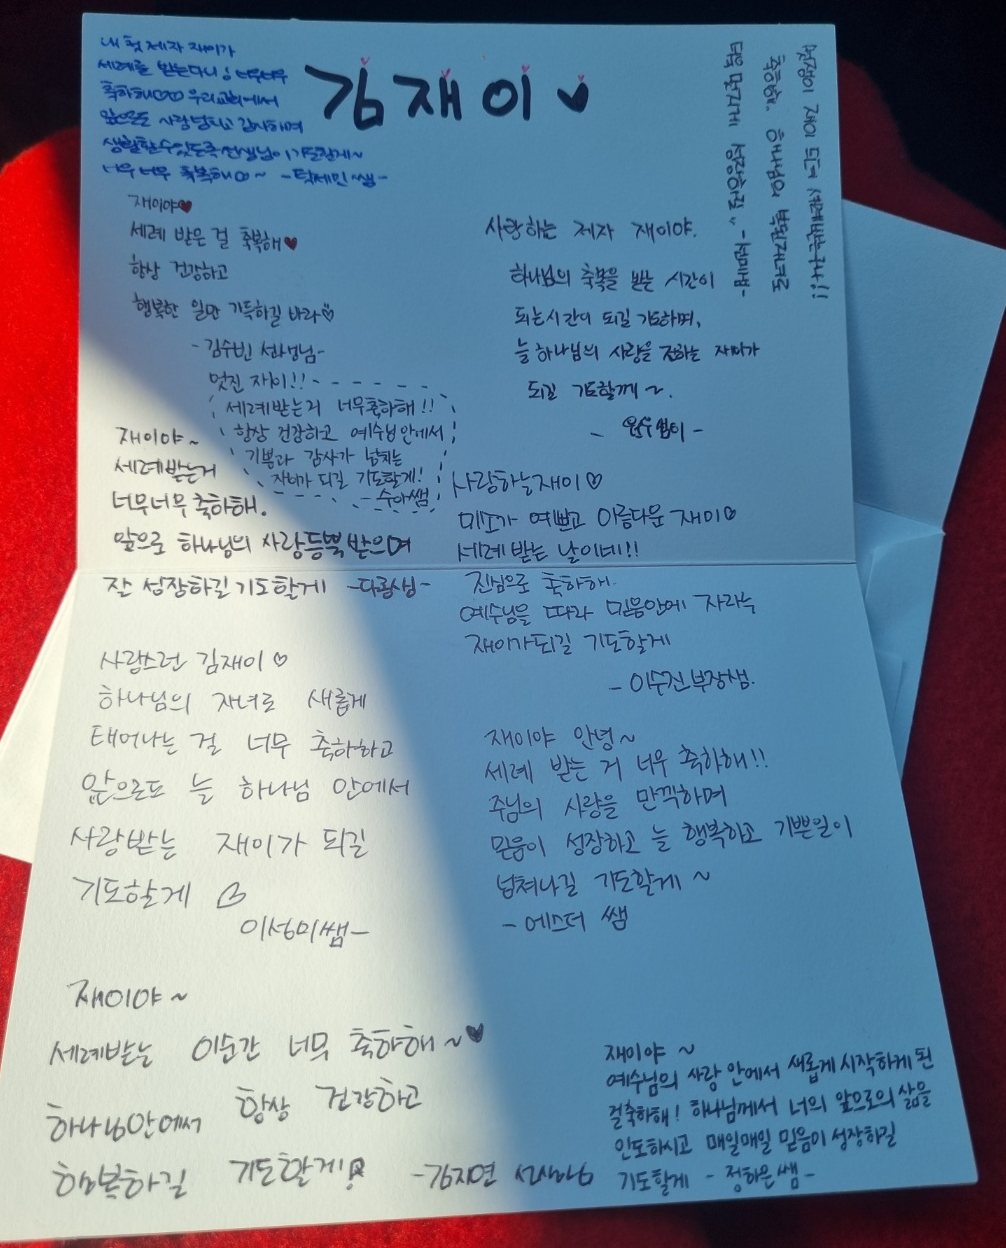 김재이
내 첫 제자 재이가
세례를 받는다니! 너무너무
축하해 우리교회에서
앞으로도 사랑받고 감사하며
생활할수있도록 선생님이 기도할게~
너무 너무 축복해 ~ -탁세민쌤-
멋쟁이 재이 드디어 세례받는구나!!
축하해. 하나님의 복된자녀로
더욱 멋지게 성장하길..
재이야♥
세례 받은 걸 축복해♥
항상 건강하고
행복한 일만 가득하길 바라♡
-김수빈 선생님-
사랑하는 제자 재이야.
하나님의 축복을 받는 시간이
되는시간이 되길 기도하며,
늘 하나님의 사랑을 전하는 재이가
되길 기도할께~.
멋진 재이!!
세례받는거 너무축하해!!
항상 건강하고 예수님안에서
기쁨과 감사가 넘치는
재이가 되길 기도할게!
-수아쌤
재이야~
세례받는거
너무너무 축하해.
앞으로 하나님의 사랑듬뿍받으며
잘 성장하길 기도할게
사랑하는재이♡
미소가 예쁘고 아름다운 재이♡
세례 받는 날이네!!
진심으로 축하해.
예수님을 따라 믿음안에 자라는
재이가되길 기도할게
-이수진부장쌤.
사랑스런 김재이♡
하나님의 자녀로 새롭게
태어나는 걸 너무 축하하고
앞으로도 늘 하나님 안에서
사랑받는 재이가 되길
기도할게
이성미쌤-
재이야 안녕~
세례 받는 거 너무 축하해!!
주님의 사랑을 만끽하며
믿음이 성장하고 늘 행복하고 기쁜일이
넘쳐나길 기도할게~
-에스더 쌤
재이야~
세례받는 이순간 너무 축하해~♥
하나님안에서 항상 건강하고
행복하길 기도할게!
-김지연 선생님
재이야~
예수님의 사랑 안에서 새롭게 시작하게 된
걸축하해! 하나님께서 너의 앞으로의 삶을
인도하시고 매일매일 믿음이 성장하길
기도할게 -정하은쌤-